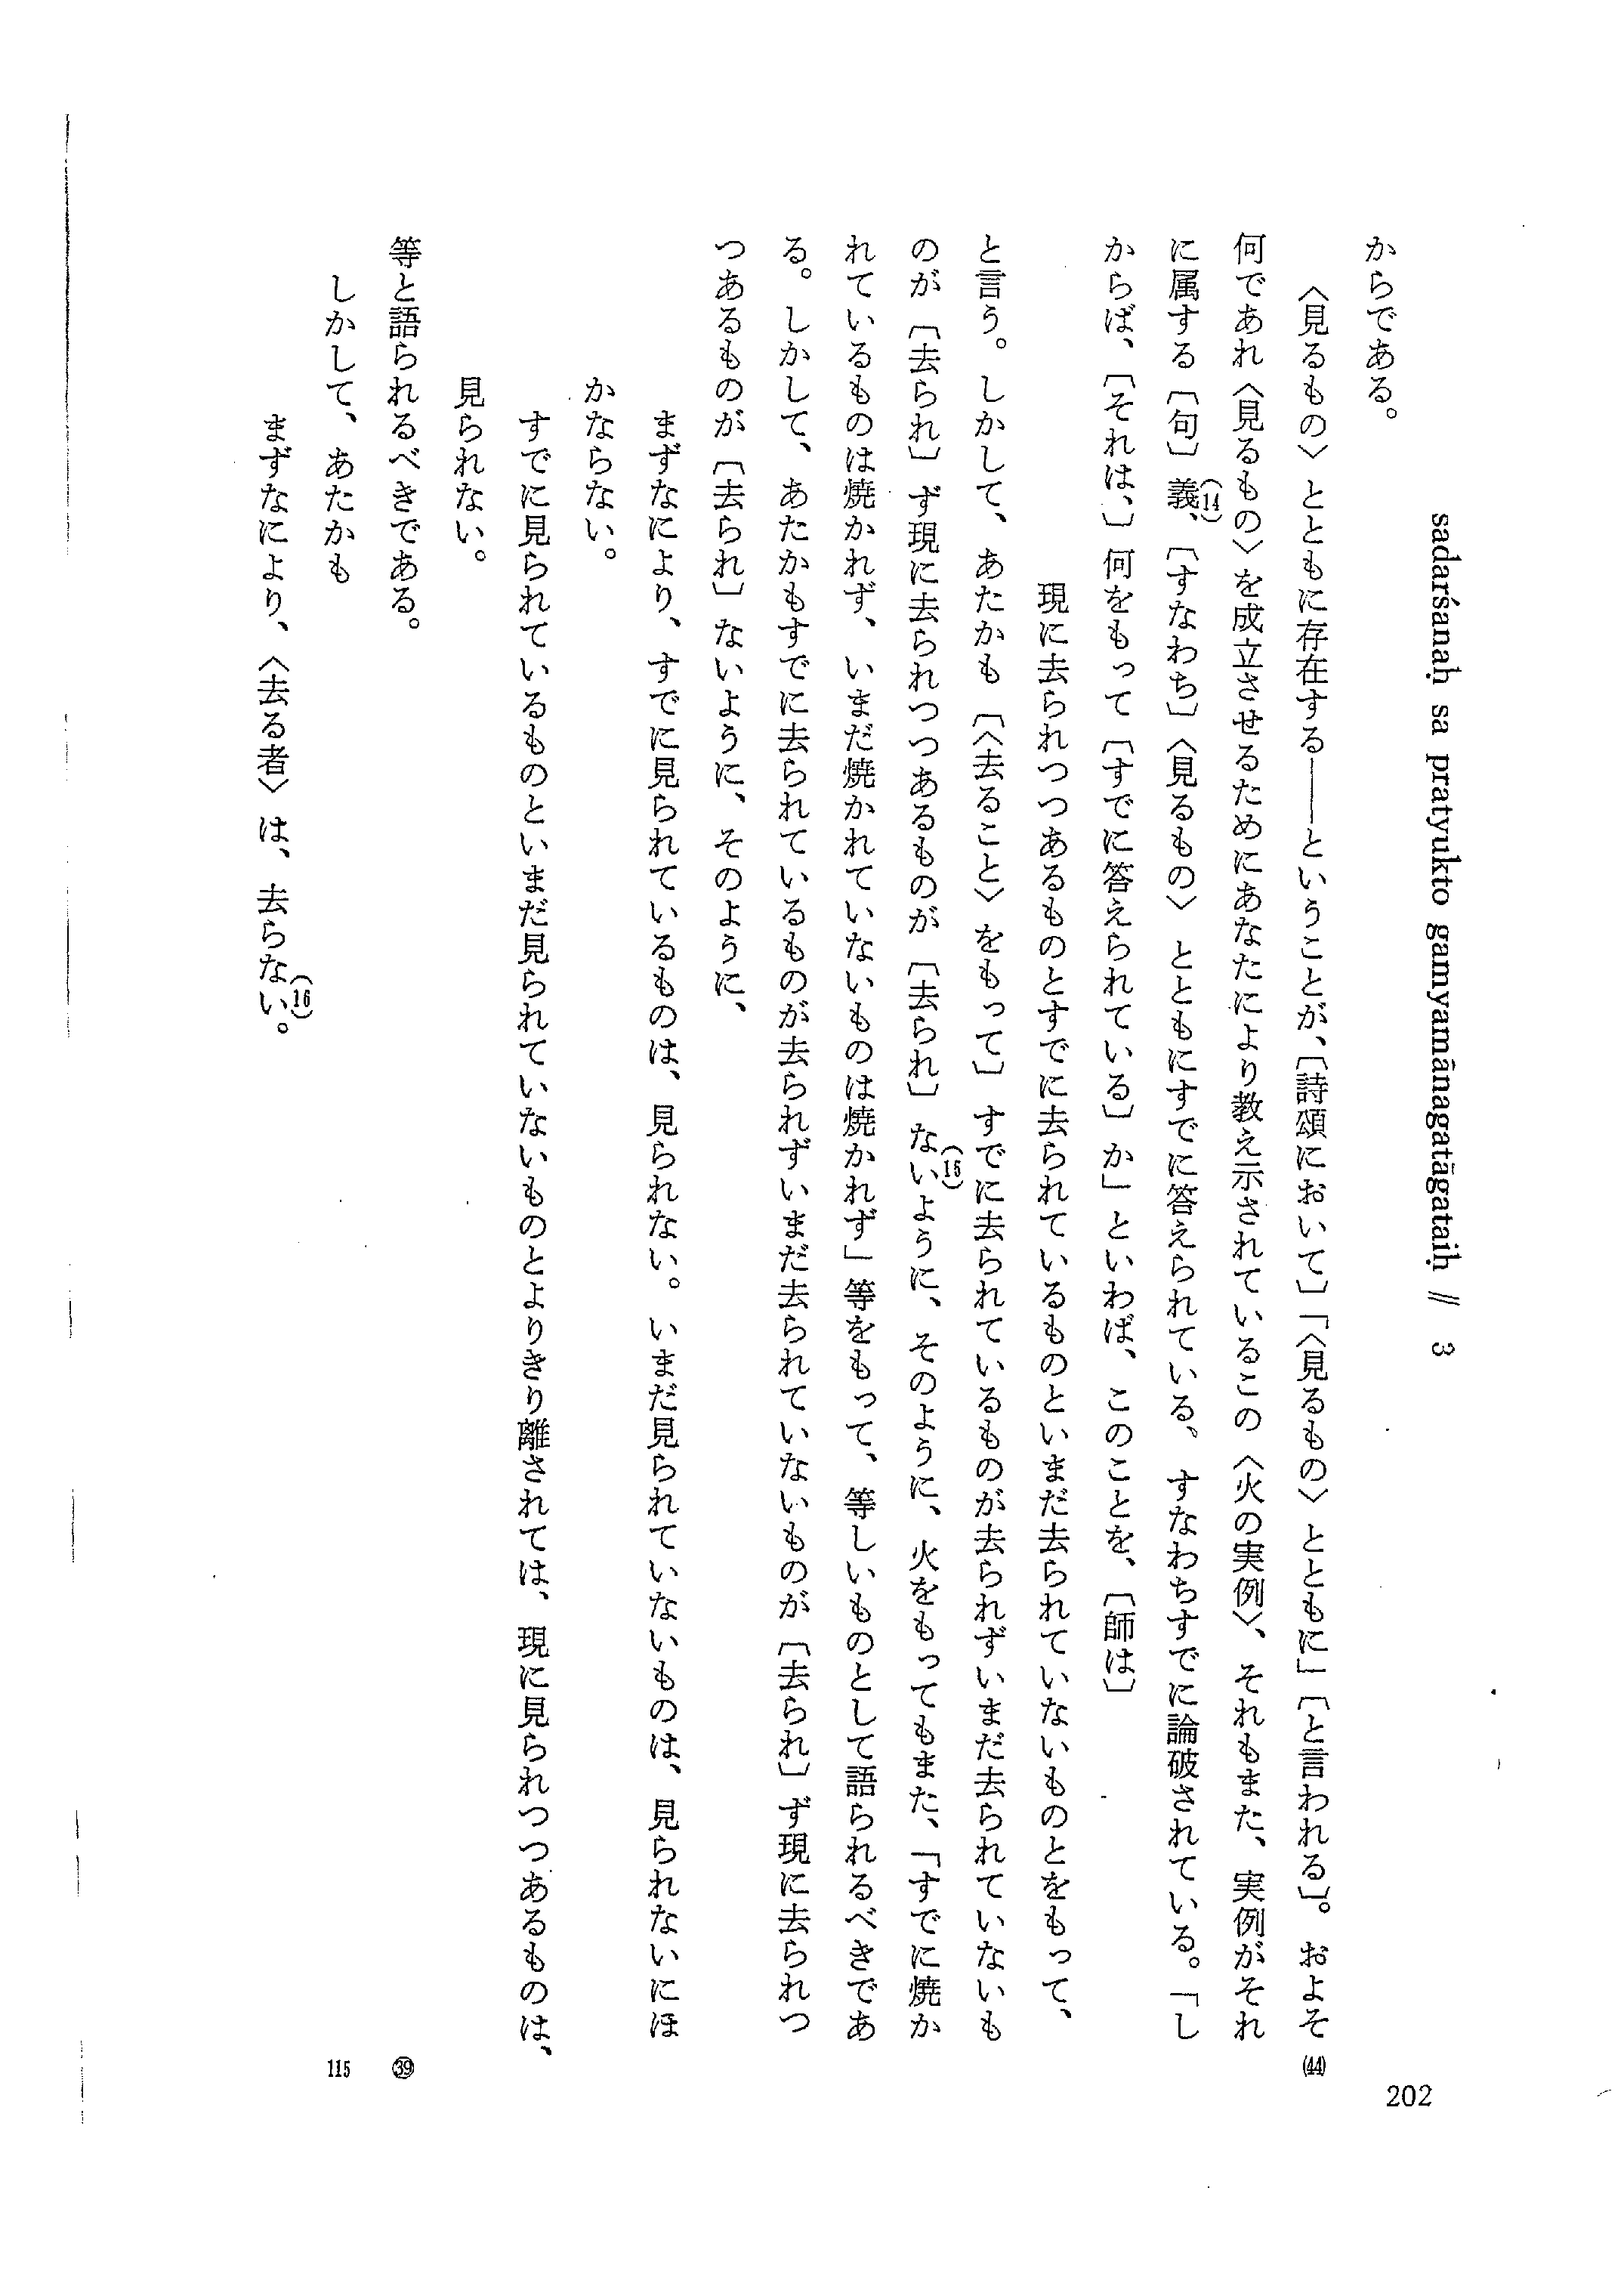 sadarśanaḥ sa pratyukto gamyamānagatāgataiḥ // 3
からである。
〈見るもの〉とともに存在する――ということが、〔詩頌において〕「〈見るもの〉とともに」〔と言われる〕。およそ
(44)
何であれ〈見るもの〉を成立させるためにあなたにより教え示されているこの〈火の実例〉、それもまた、実例がそれ
に属する〔句〕義、(14)〔すなわち〕〈見るもの〉とともにすでに答えられている。すなわちすでに論破されている。「し
からば、〔それは、〕何をもって〔すでに答えられている〕か」といわば、このことを、〔師は〕
現に去られつつあるものとすでに去られているものといまだ去られていないものとをもって、
と言う。しかして、あたかも〔〈去ること〉をもって〕すでに去られているものが去られずいまだ去られていないも
のが〔去られ〕ず現に去られつつあるものが〔去られ〕ない(15)ように、そのように、火をもってもまた、「すでに焼か
れているものは焼かれず、いまだ焼かれていないものは焼かれず」等をもって、等しいものとして語られるべきであ
る。しかして、あたかもすでに去られているものが去られずいまだ去られていないものが〔去られ〕ず現に去られつ
つあるものが〔去られ〕ないように、そのように、
まずなにより、すでに見られているものは、見られない。いまだ見られていないものは、見られないにほ
かならない。
すでに見られているものといまだ見られていないものとよりきり離されては、現に見られつつあるものは、
見られない。
等と語られるべきである。
㊴
しかして、あたかも
115
まずなにより、〈去る者〉は、去らない。(16)
202